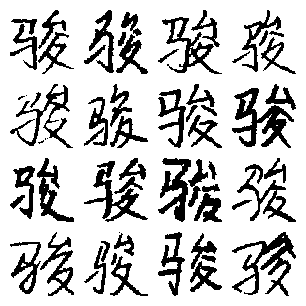 骏骏骏骏
骏骏骏骏
骏骏骏骏
骏骏骏骏